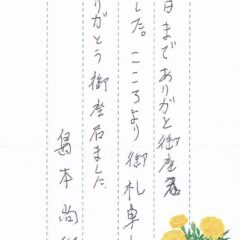 日までありがと御座居
した。こころより御札申し
りがとう御座居ました。
島本尚